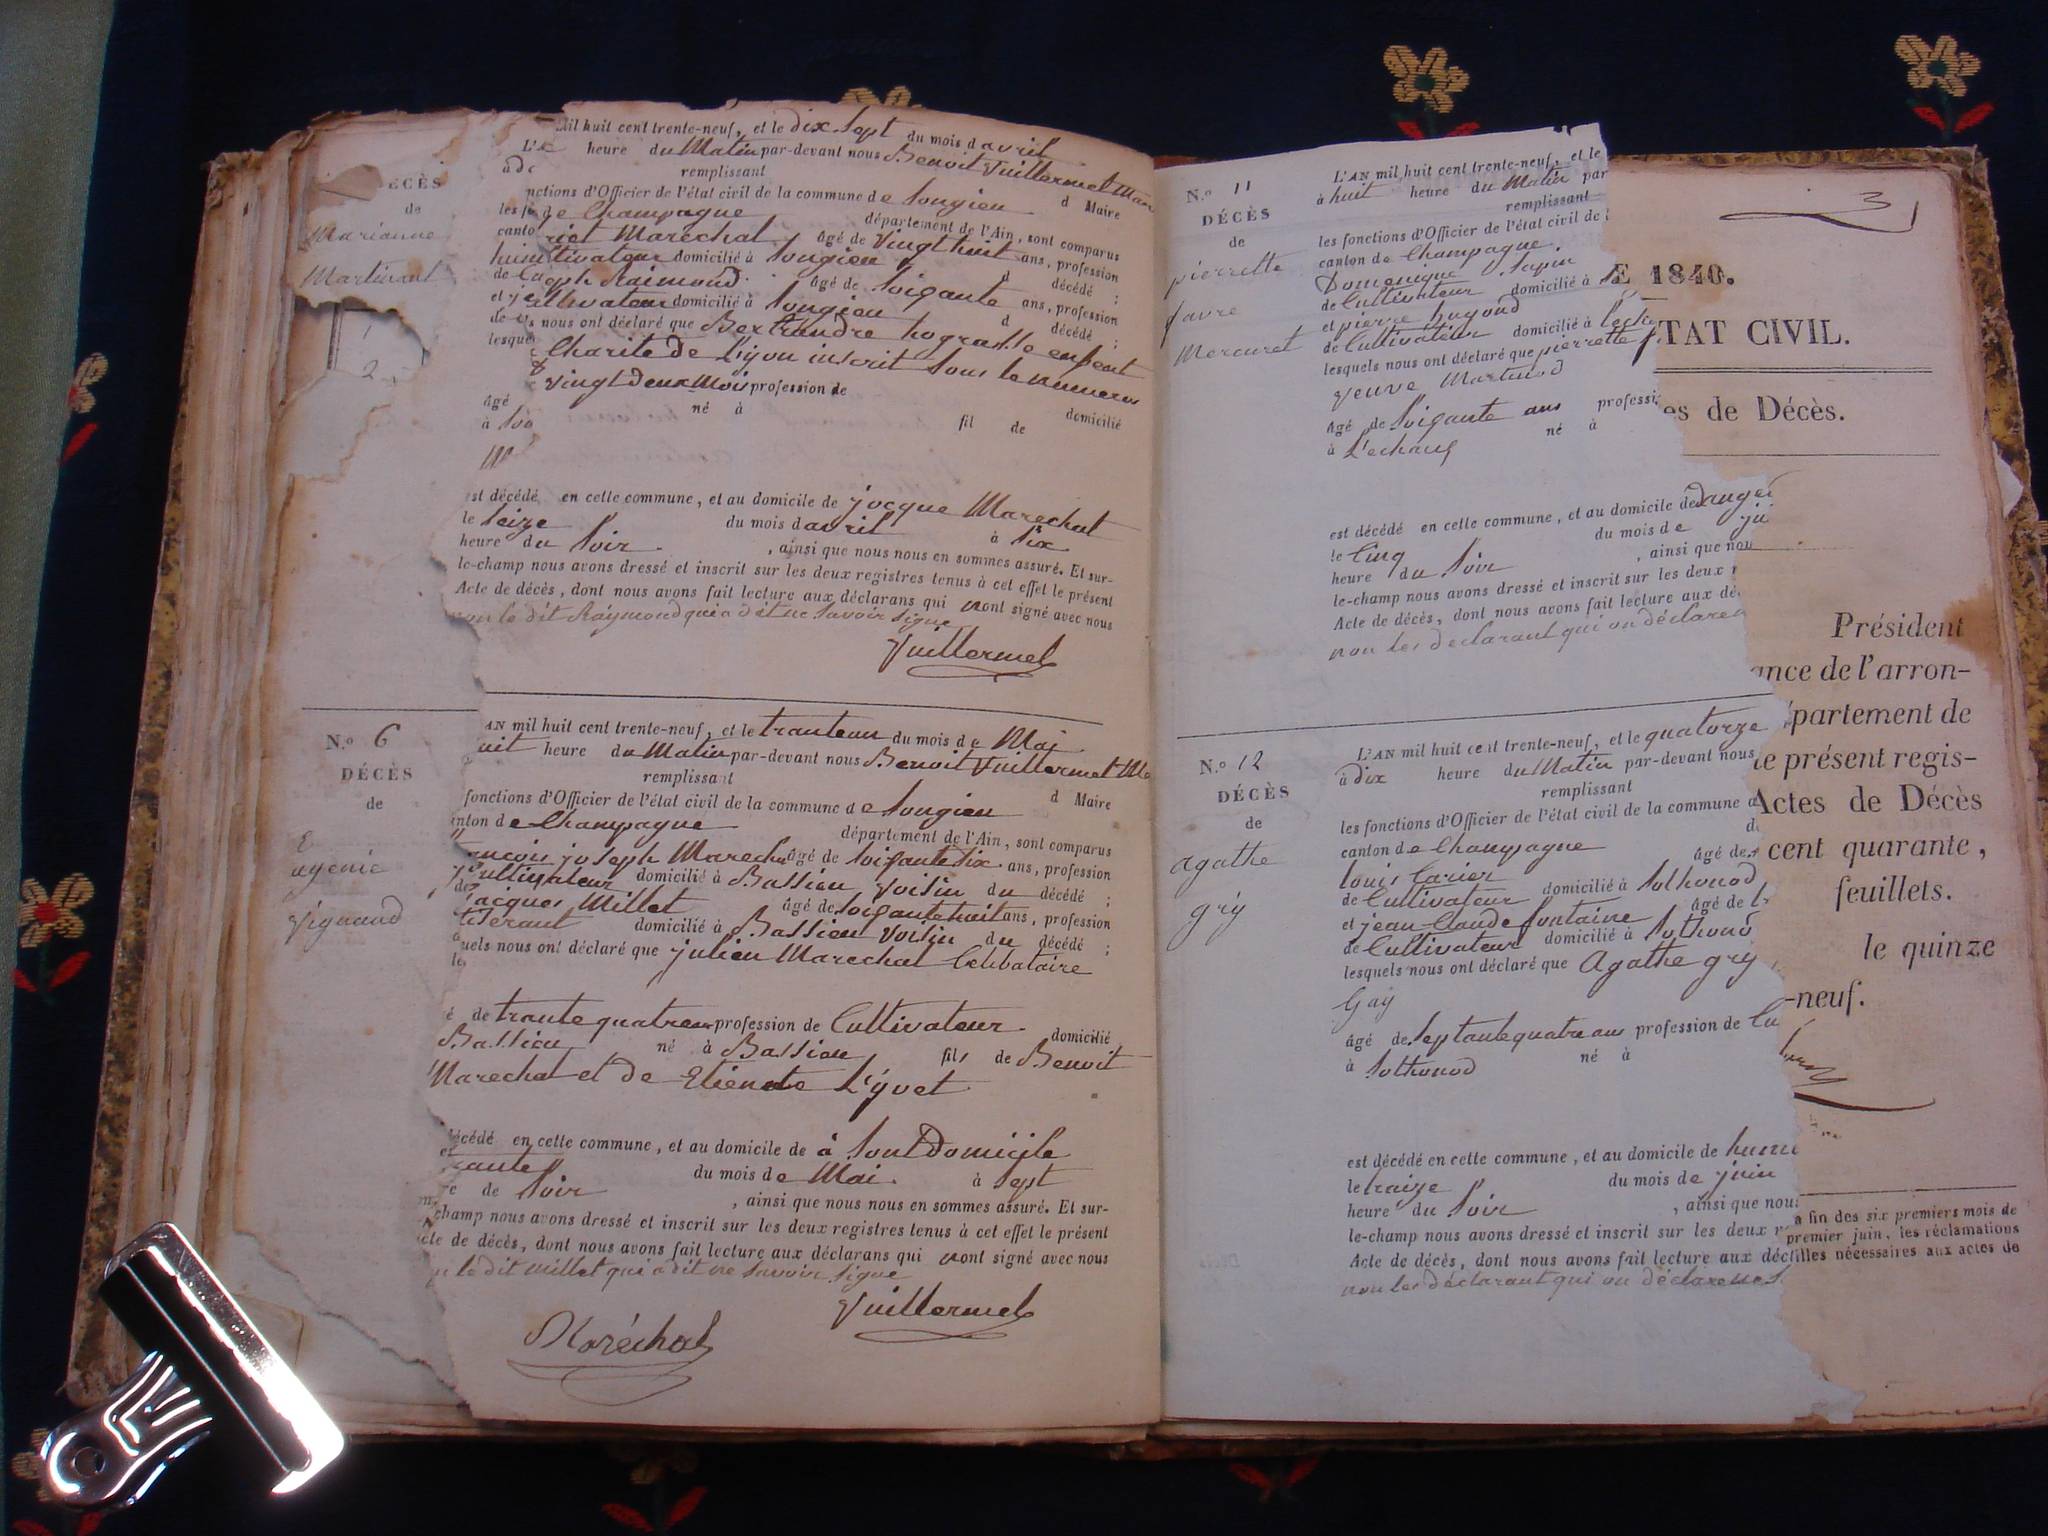 ÉCÈS
de
Marianne
Martinant
1
2
mil huit cent trente-neuf, et le dix Sept du mois d avril
heure du Matin par-devant nous Benoit Vuillermet
remplissant
nctions d'Officier de l'état civil de la commune de Songieu d Maire
de Champagne département de l'Ain, sont comparus
Marechal âgé de Vingt huit ans, profession
domicilié à Songieu d décédé ;
Raimond âgé de Soixante ans, profession
domicilié à Songieu d décédé ;
nous ont déclaré que
Charite de Lÿon inscrit Sous le numero
Vingt Deux Mois profession de domicilié
âgé né à fil de
est décédé en cette commune, et au domicile de jacque Marechal
le Seize du mois d avril à Six
heure du Soir , ainsi que nous nous en sommes assuré. Et sur-
le-champ nous avons dressé et inscrit sur les deux registres tenus à cet effet le présent
Acte de décès, dont nous avons fait lecture aux déclarans qui nont signé avec nous
non le dit Raÿmond qui a dit ne Savoir Signe
Vuillermet
N.º 6
DÉCÈS
de
E
ugenie
Vignaud
AN mil huit cent trente-neuf, et le tranteun du mois de Mai
uit heure du Matin par-devant nous Benoit Vuillermet
remplissant d Maire
fonctions d'Officier de l'état civil de la commune de Songieu
nton de Champagne département de l'Ain, sont comparus
joseph Marechal âgé de Soixantedix ans, profession
Cultivateur domicilié à Bassieu Voisin du décédé ;
Jacques Millet âgé de Soixantehuit ans, profession
domicilié à Bassieu Voisin du décédé ;
quels nous ont déclaré que julien Marechal Celibataire
é de trantequatre profession de Cultivateur domicilié
Bassieu né à Bassieu fils de Benoit
Marechal et de L'ÿvet
décédé en cette commune, et au domicile de à Sont Domicile
du mois de Mai à Sept
de Soir , ainsi que nous nous en sommes assuré. Et sur-
champ nous avons dressé et inscrit sur les deux registres tenus à cet effet le présent
cte de décès, dont nous avons fait lecture aux déclarans qui nont signé avec nous
le dit Millet qui a dit ne Savoir Signe
Vuillermet
Maréchal
N.º 11
DÉCÈS
de
pierrette
favre
Mercuret
L'AN mil huit cent trente-neuf, et le
à huit heure du Matin par
remplissant
les fonctions d'Officier de l'état civil de
canton de Champagne
Domenique Sapin
de Cultivateur domicilié à
et pierre hugond
de Cultivateur domicilié à
lesquels nous ont déclaré que pierrette f
veuve Martinod
âgé de Soixante ans professi
à né à
est décédé en cette commune, et au domicile de
le Cinq du mois de ju
heure du Soir , ainsi que nou
le-champ nous avons dressé et inscrit sur les deux
Acte de décès, dont nous avons fait lecture aux dé
non les declarant qui on déclare
N.º 12
DÉCÈS
de
agathe
grÿ
L'AN mil huit cent trente-neuf, et le quatorze
à dix heure du Matin par-devant nous
remplissant
les fonctions d'Officier de l'état civil de la commune d
canton de Champagne
louis Carier âgé de
de Cultivateur domicilié à Sothonod
et jean Claude fontaine âgé de
de Cultivateur domicilié à Sothonod
lesquels nous ont déclaré que Agathe grÿ
Gaÿ
âgé de Septantequatre ans profession de Cu
à Sothonod né à
est décédé en cette commune, et au domicile de
le traize du mois de juin
heure du Soir , ainsi que nous
le-champ nous avons dressé et inscrit sur les deux
Acte de décès, dont nous avons fait lecture aux décl
non les déclarant qui on déclare
3
E 1840.
TAT CIVIL.
es de Décès.
Président
ance de l'arron-
partement de
le présent regis-
Actes de Décès
cent quarante,
feuillets.
le quinze
-neuf.
a fin des six premiers mois de
premier juin, les réclamations
illes nécessaires aux actes de